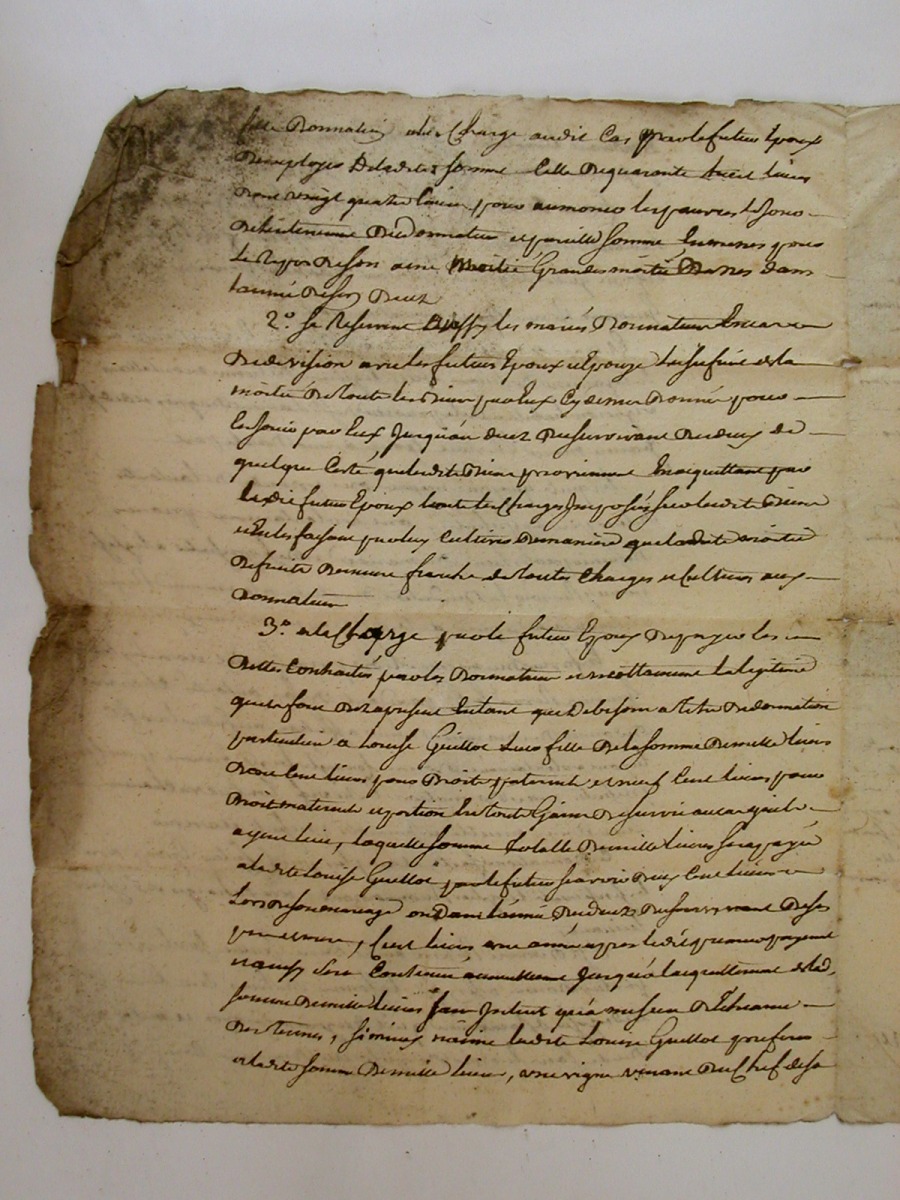 donnation, a la Charge audit Cas par le futur Epoux
d'employer de ladite somme Celle de quarante huit livres
dont vingt quatre livres pour aumones les pauvres
et pareille somme en messes pour
Le Repos de son ame moitié Grandes moitié Basses dans
lannée de son deces
2.° se Reservent aussy les mariés Donnateurs En cas
de division avec les futurs Epoux et Epouze L'usufruit de la
moitié de toute les Biens par Eux Cy dessus Donnés pour
les jouir par Eux Jusqu'au decez du survivant des deux de
quelque Coté que lesdits Biens proviennent En acquittant par
lesdits futurs Epoux toute les Charges Imposées sur lesdits Biens
et En les faisant par Eux Cultiver de maniere que ladite moitié
de fruits demeure franche de toutes Charges et Cultures aux
donnateurs
3.° a la Charge par le futur Epoux de payer les
dettes Contractés par les Donnateurs et nottamment La legitime
que se font des a present En tant que de besoin a titre de donnation
particuliere a Louise Guillot Leur fille de la somme de mille livres
dont Cent livres pour Droit paternel et neuf Cent livres pour
droit maternel et portion En tout Gain de survie au cas qu'il y
ayent lieu, laquelle somme totalle de mille livres sera payée
a ladite Louise Guillot par le futur scavoir deux Cent livres
Lors de son mariage ou Dans l'année du decez du survivant de ses
pere et mere, Cent livres une année apres ledit premier payement
et ainsy sera Continué annuellement Jusqu'a lacquittement de lad.
somme de mille livres sans Interet qu'a mesure d'Echeance
des termes, si mieux n'aime ladite Louise Guillot preferer
a ladite somme de mille livres, une vigne venant du Chef de sa